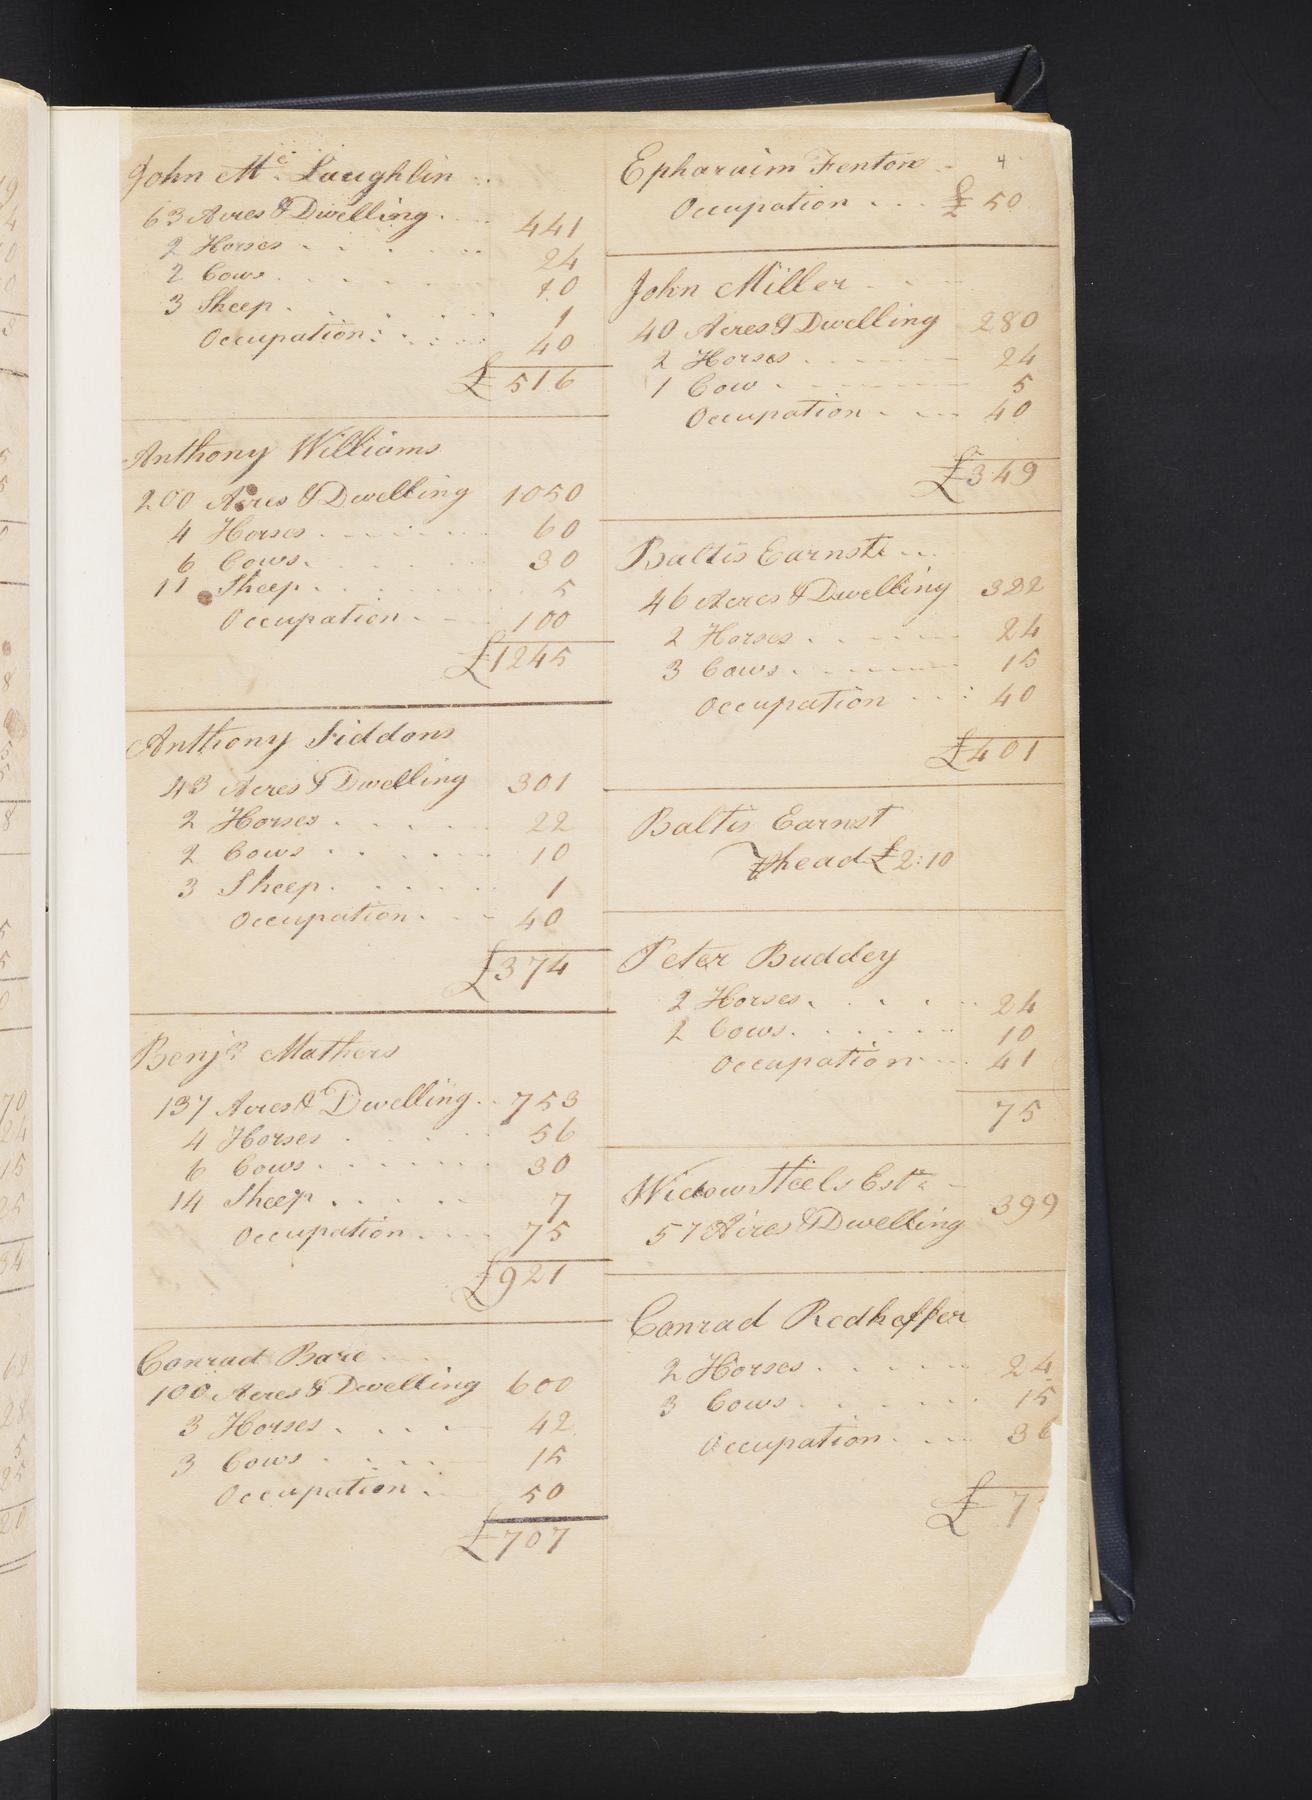 John Mc. Laughlin
63 Acres & Dwelling 441
2 Horses 24
2 Cows 10
3 Sheep 1
Occupation 40
£ 516
Anthony Williams
200 Acres & Dwelling 1050
4 Horses 60
6 Cows 30
11 Sheep 5
Occupation 100
£1245
Anthony Siddons
43 Acres & Dwelling 301
2 Horses 22
2 Cows 10
3 Sheep 1
Occupation 40
£374
Benjn Mathers
137 Acres & Dwelling 753
4 Horses 56
6 Cows 30
14 Sheep 7
Occupation 75
£921
Conrad Bare
100 Acres & Dwelling 600
3 Horses 42
3 Cows 15
Occupation 50
£707
4
Epharaim Fenton
Occupation £ 50
John Miller
40 Acres & Dwelling 280
2 Horses 24
1 Cow 5
Occupation 40
£349
Baltis Earnst
46 Acres & Dwelling 322
2 Horses 24
3 Cows 15
Occupation 40
£401
Baltis Earnst
head £2:10
Peter Buddey
2 Horses 24
2 Cows 10
Occupation 41
75
Widow Steels Este
57 Acres & Dwelling 399
Conrad Redheffer
2 Horses 24
3 Cows 15
Occupation 3
£ 7